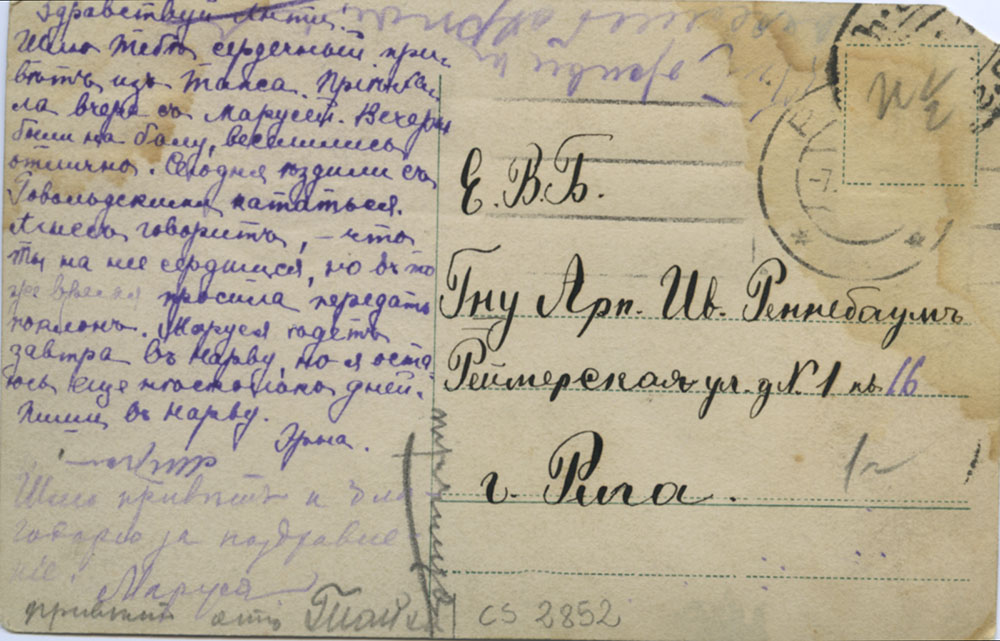 Здравствуй Анти!
Шлю Тебѣ сердечный при-
вѣтъ изъ Тапса. Пріѣха-
ла вчера съ Марусей. Вечеромъ
были на балу, веселились
отлично. Сегодня ѣздили съ
кататься.
говоритъ, – что
ты на нее сердишься, но въ то
же время просила передать
поклонъ. Маруся ѣдетъ
завтра въ Нарву, но я оста
юсь еще нѣсколько дней.
Пиши въ Нарву.
Эрна.
Шлю привѣтъ и бла-
годарю за поздравле
ніе. Маруся
привѣтъ отъ
Е. В. Б.
Гну Арп. Ив. Реннебаумъ
Реймерская ул. д № 1 кв. 16
г. Рига.
CS 2852